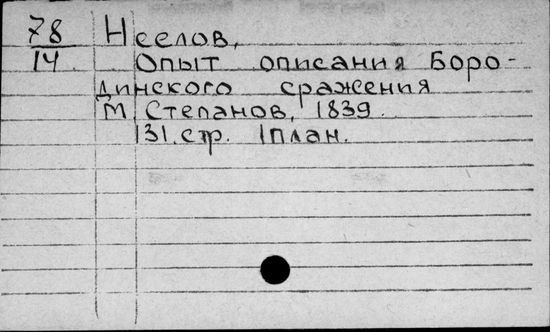 78 Нeелов,
14 Опыт описания Боро-
динского сражения
М, Степанов, 1839.
131.стр. 1план.